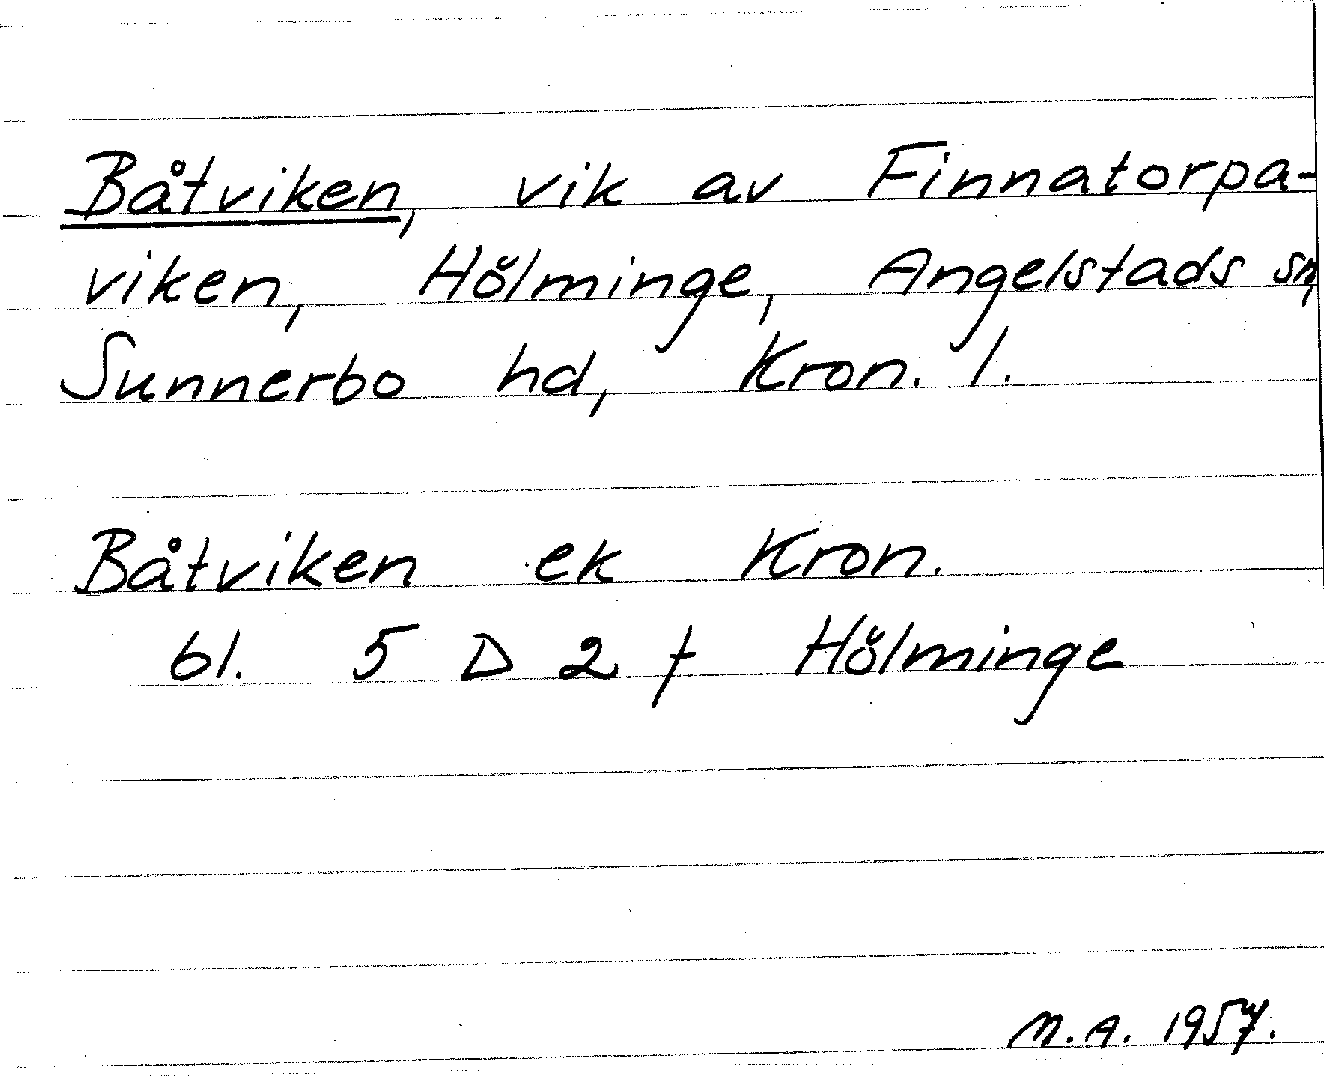 Båtviken, vik av Finnatorpa-
viken, Hölminge, Angelstads sn,
Sunnerbo hd, Kron. l.
Båtviken ek Kron.
bl. 5 D 2 f Hölminge
M.A. 1957.